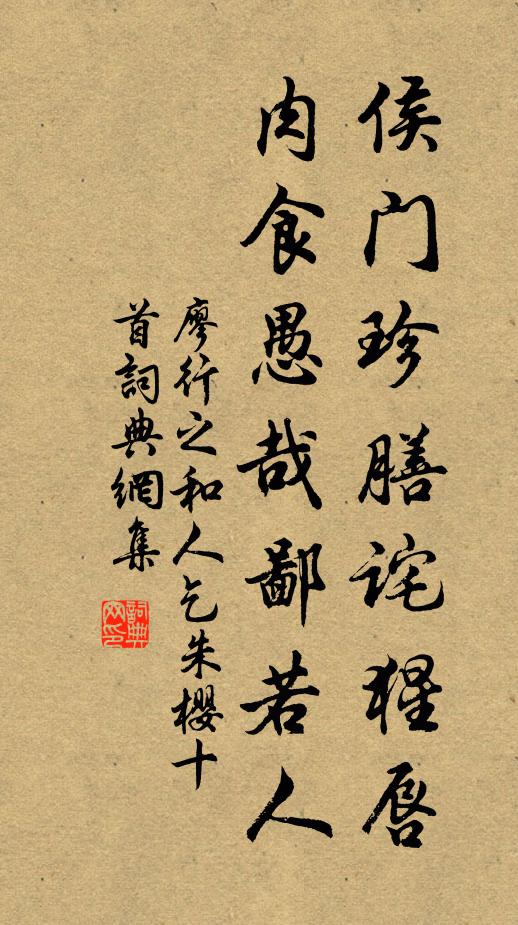 侯门珍膳詫猩唇
肉食愚哉鄙若人
廖行之和人乞朱櫻十
首詞典網集
詞典
网印